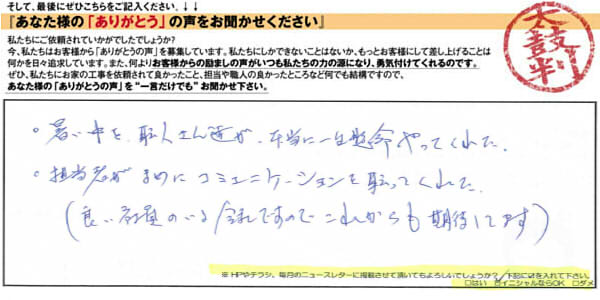 そして、最後にぜひこちらをご記入ください。↓↓
『あなた様の「ありがとう」の声をお聞かせください』
私たちにご依頼されていかがでしたでしょうか?
今、私たちはお客様から「ありがとうの声」を募集しています。私たちにしかできないことはないか、もっとお客様にして差し上げることは
何かを日々追求しています。また、何よりお客様からの励ましの声がいつも私たちの力の源になり、勇気付けてくれるのです。
ぜひ、私たちにお家の工事を依頼されて良かったこと、担当や職人の良かったところなど何でも結構ですので、
あなた様の「ありがとうの声」を“一言だけでも”お聞かせ下さい。
太鼓判
・暑い中を、職人さん達が、本当に一生懸命やってくれた。
・担当者がまめにコミュニケーションを取ってくれた。
(良い社員のいる会社ですのでこれからも期待してます)
※HPやチラシ、毎月のニュースレターに掲載させて頂いてもよろしいでしょうか?下記に☑を入れて下さい。
□はい ☑イニシャルならOK □ダメ